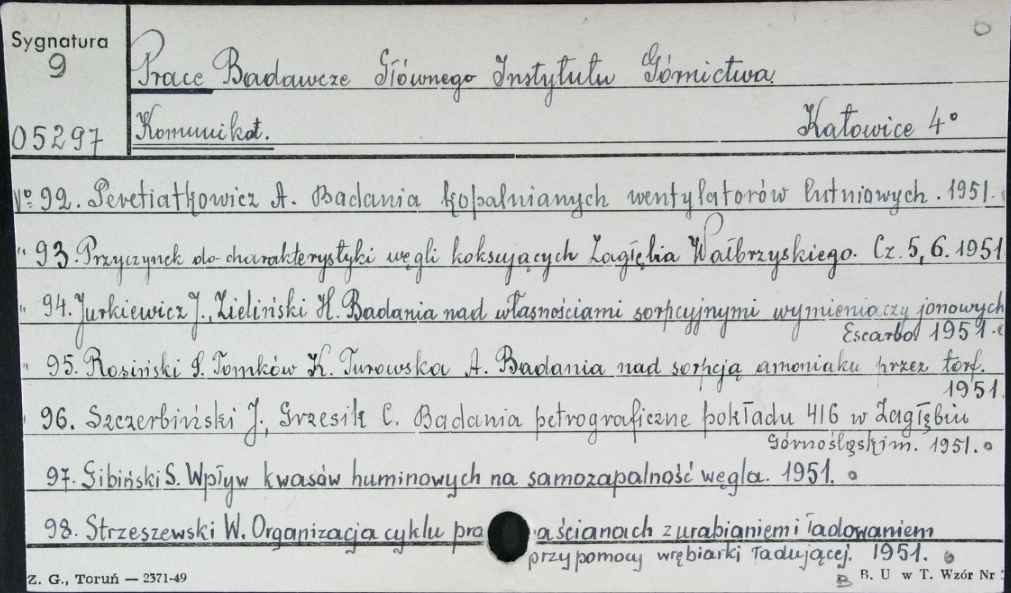 Sygnatura
9
05297
Prace Badawcze Głównego Instytutu Górnictwa.
Komunikat. Katowice 4°
№ 92. Peretiatkowicz A. Badania kopalnianych wentylatorów lutniowych. 1951.
" 93. Przyczynek do charakterystyki węgli koksujących Zagłębia Wałbrzyskiego. Cz. 5, 6. 1951
" 94. Jurkiewicz J., Zieliński H. Badania nad własnościami sorpcyjnymi wymieniaczy jonowych
Escarbo 1951.
" 95. Rosiński S. Tomków K. Turowska A. Badania nad sorpcją amoniaku przez torf.
1951.
96. Szczerbiński J., Grzesik C. Badania petrograficzne pokładu 416 w Zagłębiu
Górnośląskim. 1951.
97. Gibiński S. Wpływ kwasów huminowych na samozapalność węgla. 1951.
98. Strzeszewski W. Organizacja cyklu pra a ścianach z urabianiem i ładowaniem
przy pomocy wrębiarki ładującej. 1951.
Z. G., Toruń — 2371-49
B. U w T. Wzór Nr